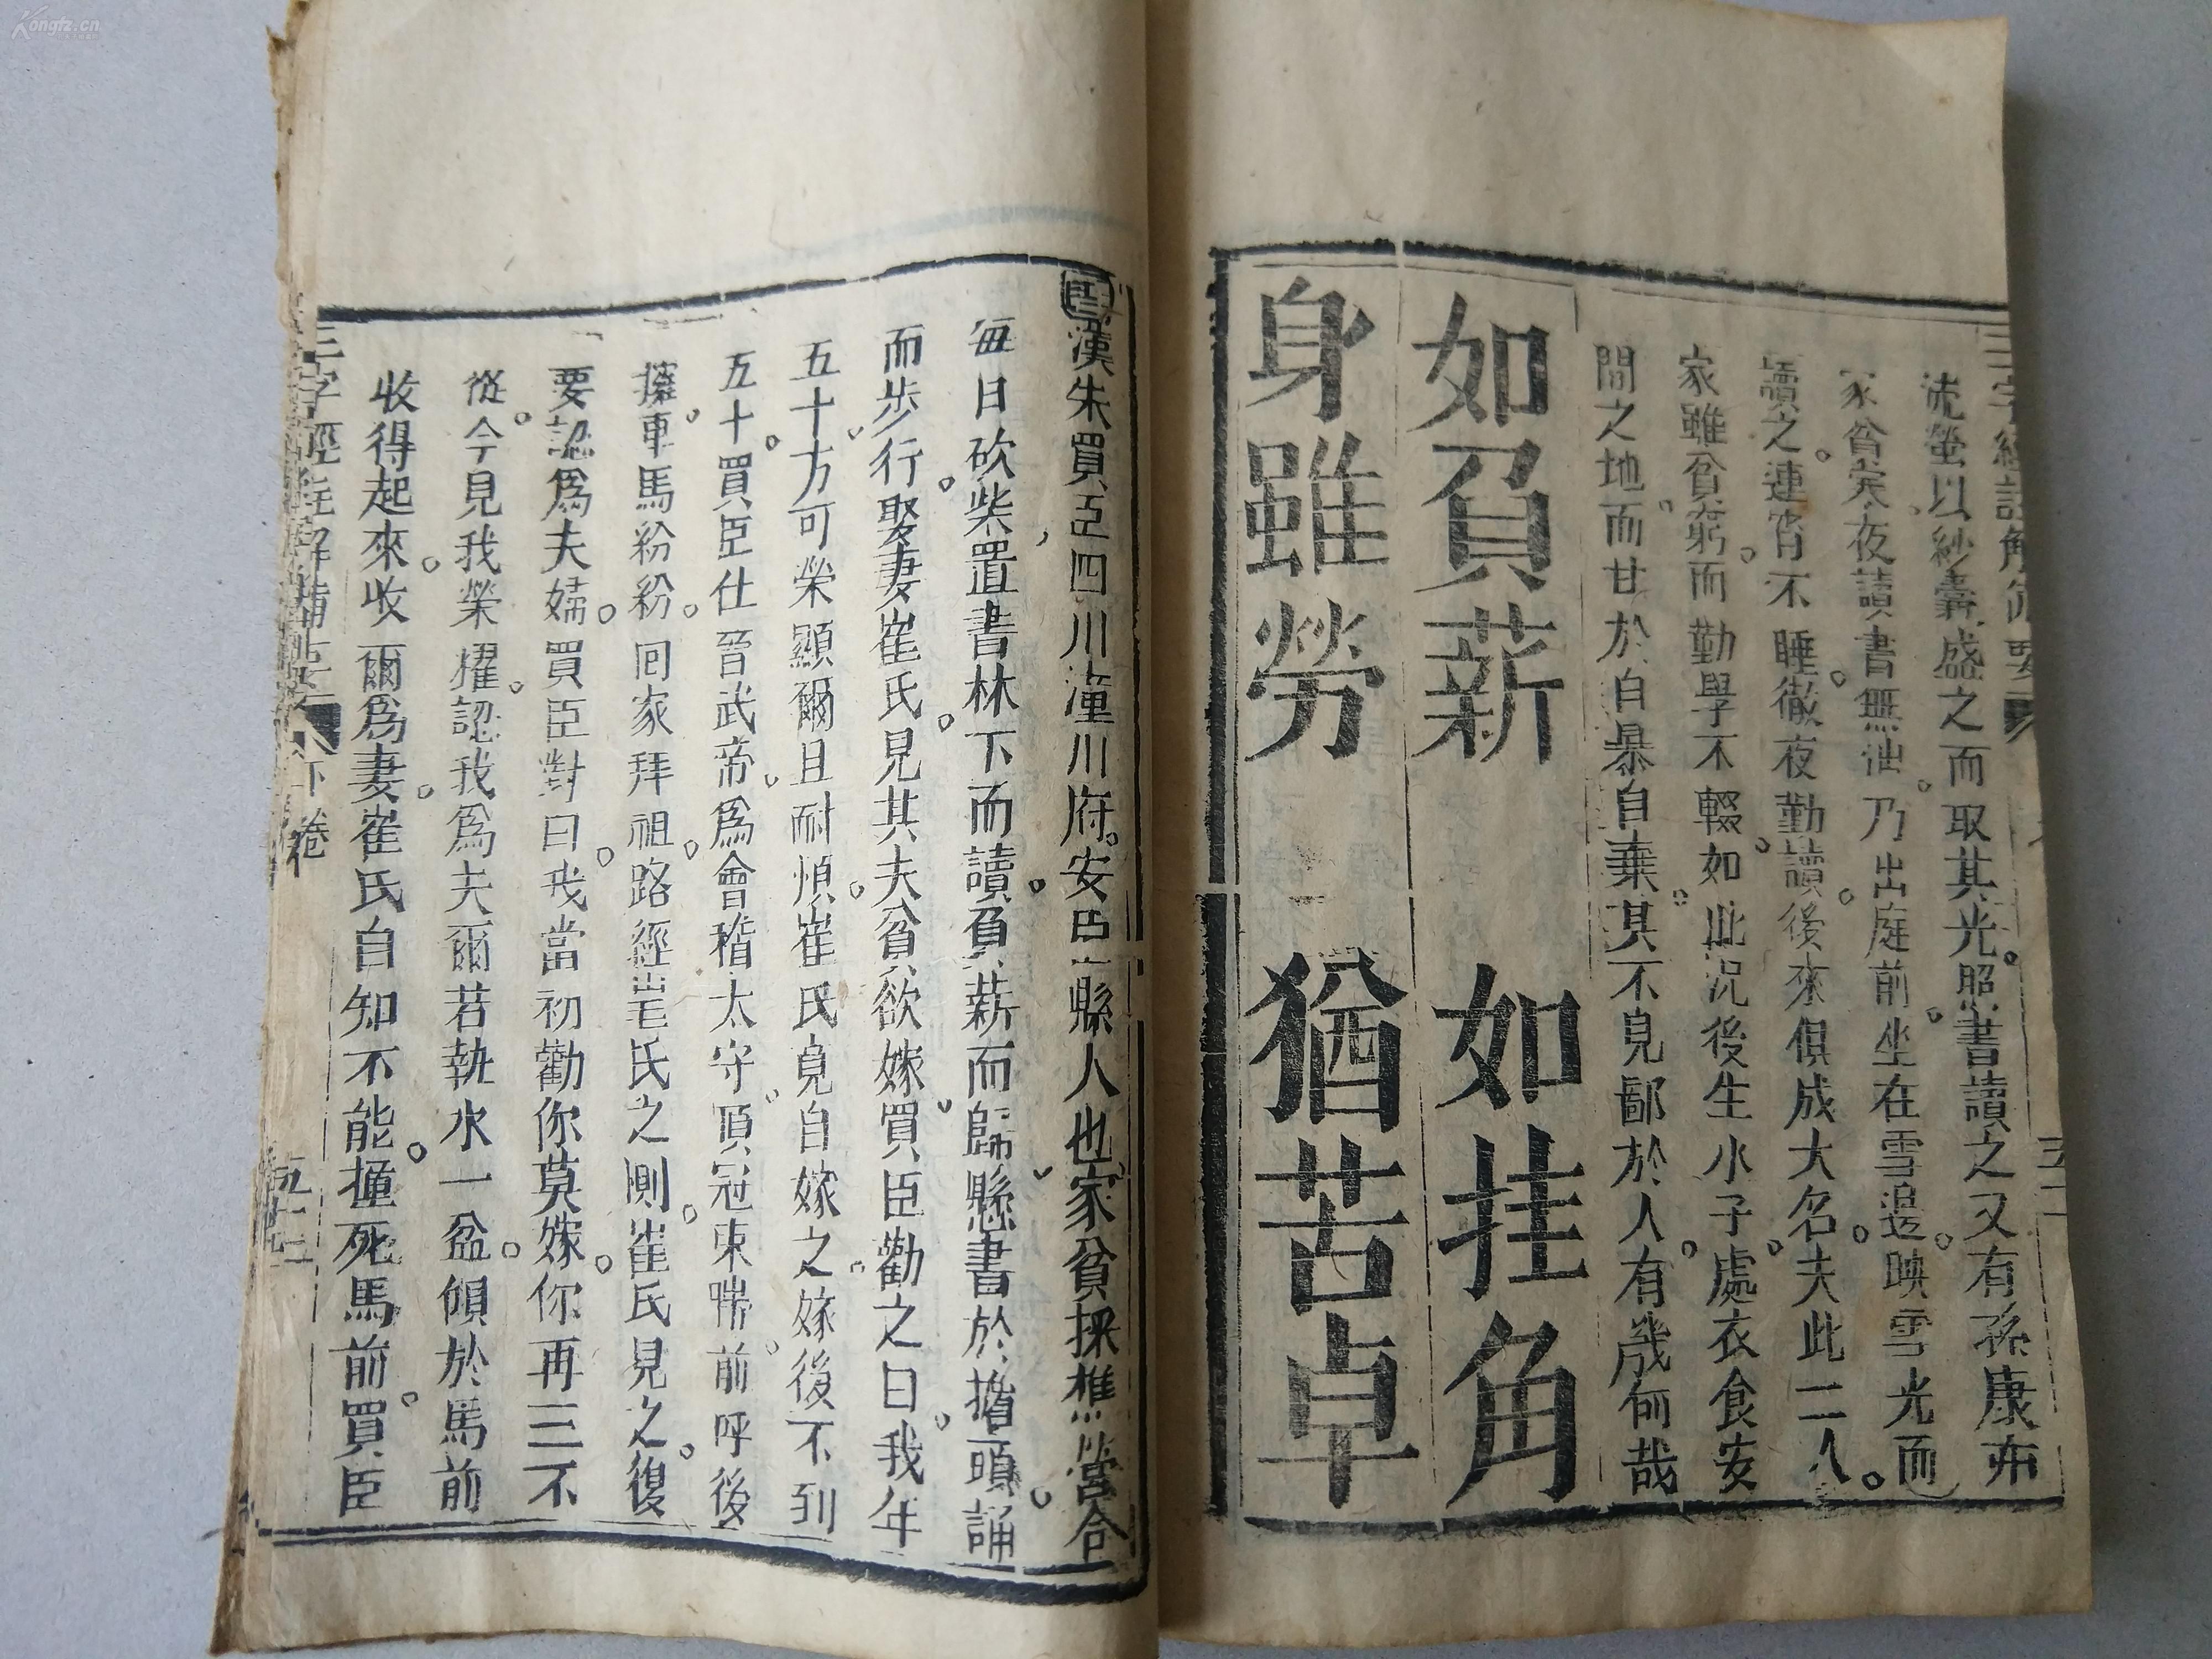 Kongfz.cn
三字經註解備要
五二
流螢以紗囊盛之而取其光照書讀之又有孫康亦
家貧業夜讀書無油乃出庭前坐在雪邊映雪光而
讀之連宵不睡徹夜勤讀後來俱成大名夫此二人
家雖貧窮而勤學不輟如此況後生小子處衣食安
閒之地而甘於自暴自棄其不見鄙於人有幾何哉
如負薪 如挂角
身雖勞 猶苦卓
漢朱買臣四川潼川府安岳縣人也家貧採樵營合
每日砍柴置書林下而讀負薪而歸懸書於擔頭誦
而步行娶妻崔氏見其夫貧欲嫁買臣勸之曰我年
五十方可榮顯爾且耐煩崔氏竟自嫁之嫁後不到
五十買臣仕晉武帝為會稽太守頂冠束帶前呼後
擁車馬紛紛囘家拜祖路經崔氏之側崔氏見之復
要認為夫婦買臣對曰我當初勸你莫嫁你再三不
從今見我榮耀認我為夫爾若執水一盆傾於馬前
收得起來收爾為妻崔氏自知不能撞死馬前買臣
三字經註解備要
下卷
五十二